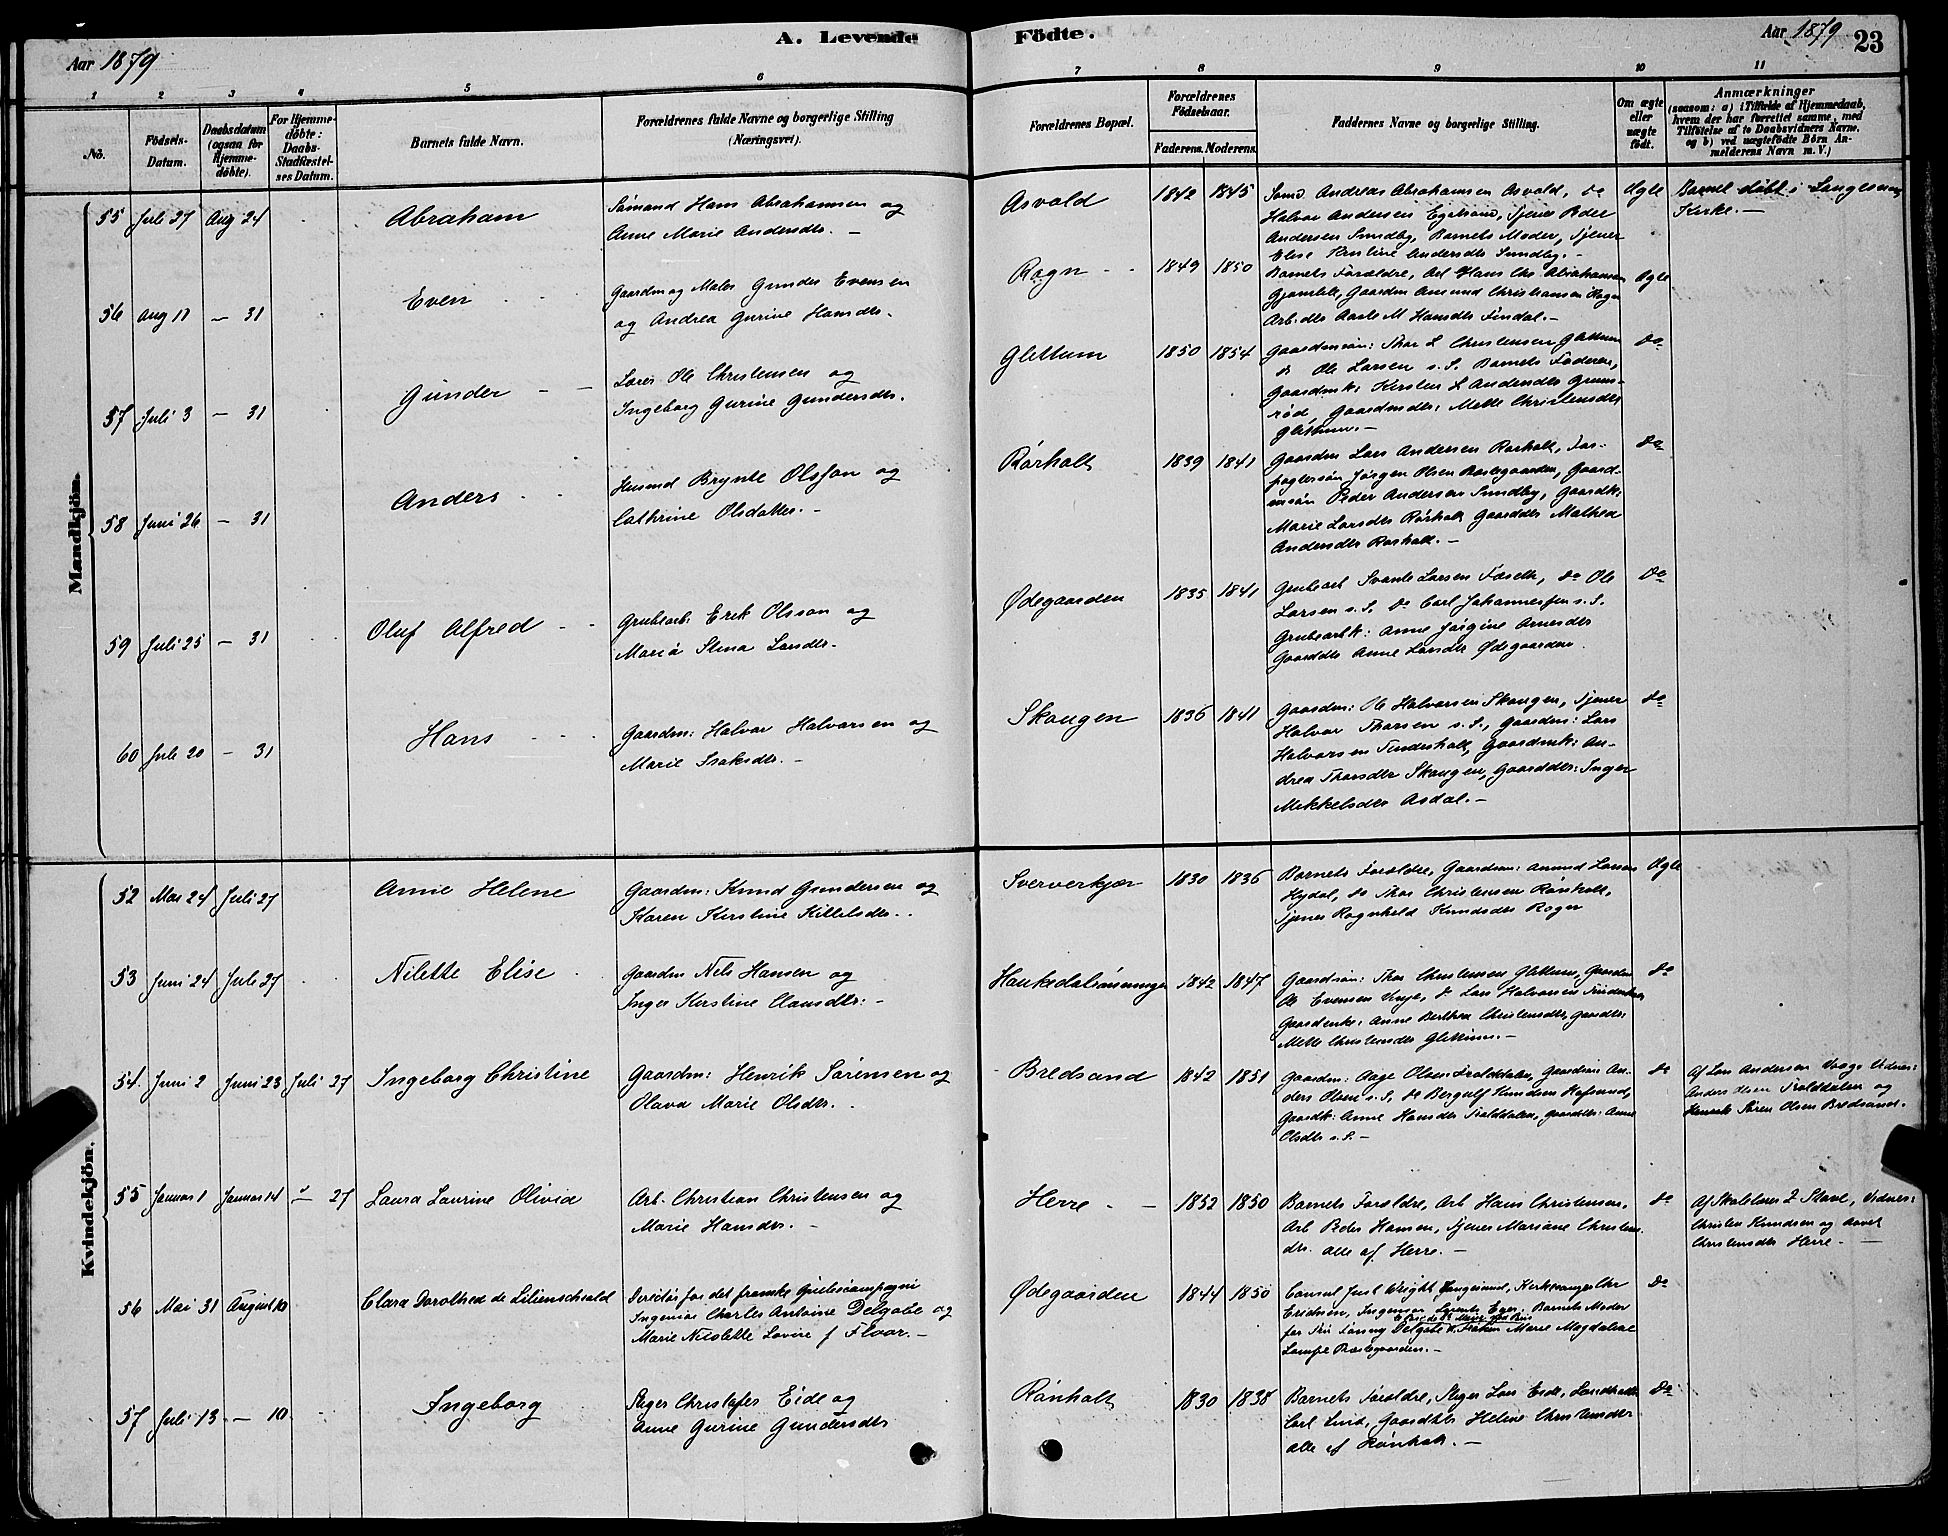 Aar 1879
A. Levende
Födte.
Aar 1879
23
1 2 3 4 5 6 7 8 9 10 11
No.
Födsels-
Datum.
Daabsdatum
(ogsaa for
Hjemme-
döbte).
For Hjemme-
döbte:
Daabs-
Stadfæstel-
ses Datum.
Barnets fulde Navn.
Forældrenes fulde Navne og borgerlige Stilling
(Næringsvei).
Forældrenes Bopæl.
Forældrenes
Födselsaar.
Faderens. Moderens.
Faddernes Navne og borgerlige Stilling.
Om ægte
eller
uægte
født.
Anmærkninger
(saasom: a) i Tilfælde af Hjemmedaab,
hvem der har forrettet samme, med
Tilföielse af to Daabsvidners Navne,
og b) ved uægtefödte Börn An-
melderens Navn m. V.)
Mandkjön.
55 Juli 27 Aug 24 Abraham
Sømand Hans Abrahamsen og
Anne Marie Andersdtr. —
Asvald 1842 1845
Sømd Andreas Abrahamsen Asvald, do
Halvor Andersen Egesund, Tjener Peder
Andersen Sundby, Barnets Moder, Tjener
Elise Kirstine Andersdtr Sundby. —
Ægte
Barnet døbt i Langesund
Kirke. —
56 Aug 11 — 31 Even
Gaardm og Maler Gunder Evensen
og Andrea Gurine Hansdtr.
Rogn 1849 1850
Barnets Forældre, Arb Hans Chr Abrahamsen
Gjømle, Gaardm Amund Christiansen Rogn
Arb.dtr Aasle M Hansdtr Findal. —
Ægte
57 Juli 3 — 31 Gunder
Lærer Ole Christensen og
Ingeborg Gurine Gundersdtr.
Glittum 1850 1854
Gaardmsøn: Thor L Christensen Glittum
do Ole Larsen s. S. Barnets Fader,
Gaardmk: Kirsten L Andersdtr Grums-
rød, Gaardmdtr: Mette Christensdtr
Glittum. —
do
58 Juni 26 — 31 Anders
Husmd Brynte Olsson og
Cathrine Olsdatter. —
Rørholt 1839 1841
Gaardm Lars Andersen Rørholt,
søn Jørgen Olsen Barlegaarden, Gaard-
msøn Peder Andersen Sundby, Gaardk:
Marie Larsdtr Rørholt Gaarddtr Mathea
Andersdtr Rørholt. —
do
59 Juli 25 — 31 Oluf Alfred
Grubearb. Erik Olsson og
Maria Stina Larsdtr.
Ødegaarden 1835 1841
Grubearb Svante Larsen Fæseth, do Ole
Larsen s. S. do Carl Johannessen s. S.
Grubearbk: Anne Jørgine Arnesdtr
Gaarddtr Anne Larsdtr Ødegaarden.
do
60 Juli 20 — 31 Hans
Gaardm: Halvor Halvorsen og
Marie Isaksdtr. —
Skougen 1836 1841
Gaardm: Ole Halvorsen Skougen, Tjener
Halvor Thorsen s. S., Gaardm: Lars
Halvorsen Findesholt, Gaardmk: An-
drea Thorsdtr Skougen, Gaarddtr: Inger
Mikkelsdtr Asdal. —
do
Kvindekjön.
52 Mai 24 Juli 27 Anne Helene
Gaardm: Knud Gundersen og
Karen Kirstine Killilsdtr.
Sververkjær 1830 1836
Barnets Forældre, Gaardsøn: Amund Larsen
Hydal, do Thor Christensen Rønholt,
Tjener Rognhild Knudsdtr Rogn
Ægte
53 Juni 24 Juli 27 Nilette Elise
Gaardm Nils Hansen og
Inger Kirstine Hansdtr: —
Haukedalsrønninge 1842 1847
Gaardsøn: Thor Christensen Glittum, Gaardm
Ole Evensen, do Lars Halvorsen Findesholt
Gaardenke: Anne Berthea Christensdtr, Gaarddtr:
Mette Christensdtr Glittum. —
do
54. Juni 2 Juni 23 Juli 27 Ingeborg Christine
Gaardm: Henrik Sørensen og
Olava Marie Olsdtr.
Bredsand 1842 1851
Gaardm: Aage Olsen Trolddalen, Gaardsøn An-
ders Olsen s. S, do Bergulf Knudsen Hafsund,
Gaardk: Anne Hansdtr Trolddalen, Gaarddtr: Anne
Olsdtr s. S. —
do
Af Lars Andersen Vidner:
Anders Olsen Trolddalen og
Henrik Søren Olsen Bredsand.
55 Januar 1 Januar 14 " — 27 Laura Laurine Olivia
Arb. Christian Christensen og
Marie Hansdtr. —
Herre 1852 1850
Barnets Forældre, Arb Hans Christensen,
Arb Peder Hansen, Tjener Mariane Christens-
dtr. alle af Herre. —
do
Af Skolelærer Z Stave, Vidner:
Christen Knudsen og
Christensdtr Herre. —
56 Mai 31 August 10 Clara Dorothea de Lilienschiold
Direktør for det franske Grubecompagni
Ingeniør Charles Antoine Delgobe og
Marie Nicolette Lovise f Floor. —
Ødegaarden 1844 1850
Consul Just Wright Langesund, Kirkesanger Chr
Eriksen, Ingeniør Barnets Moder
for Frk Fanny Delgobe, Frøken Marie Magdalene
Lampe Barlegaarden. —
do
57 Juli 13 — 10 Ingeborg
Steger Christofer Eide og
Anne Gurine Gundersdtr
Rønholt 1830 1838
Barnets Forældre, Steger Lars Eide, Landhandler
Carl Lund, Gaarddtr Helene Christensdtr
alle af Rønholt. —
do